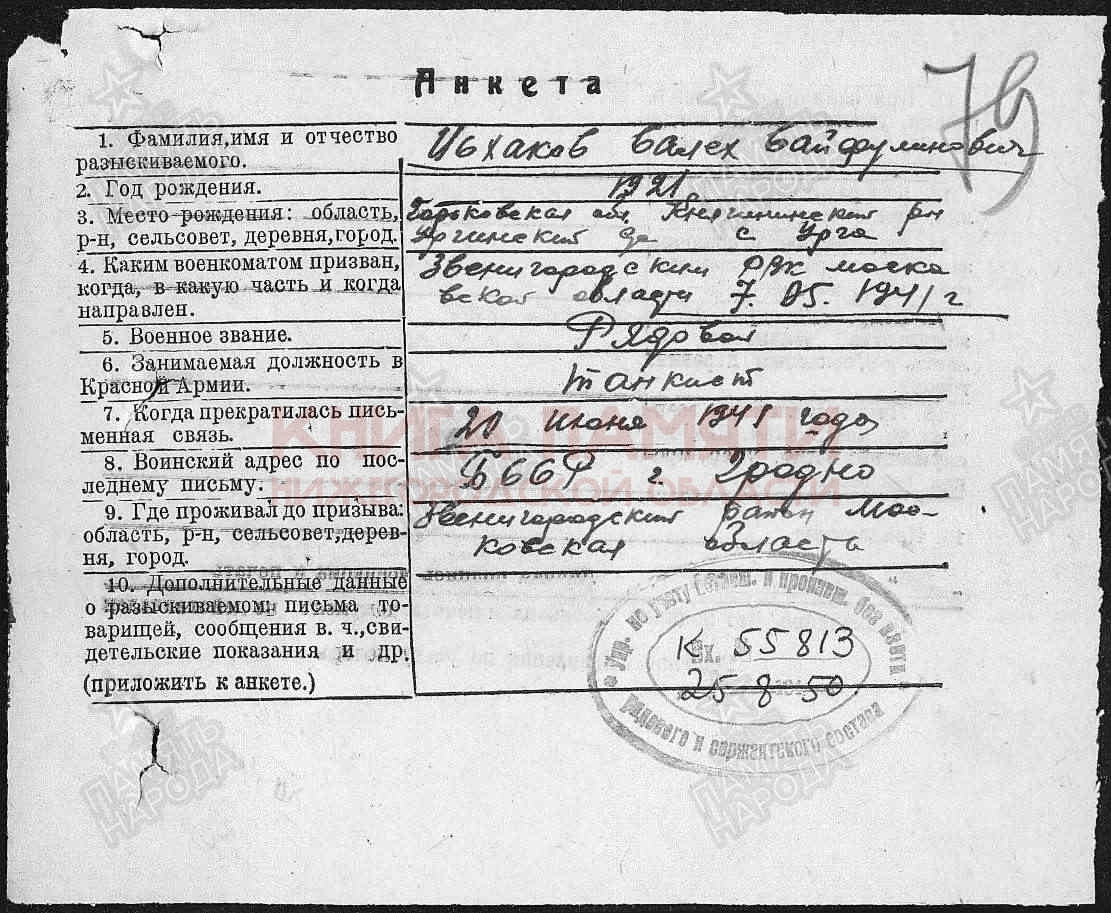 79
Анкета
1. Фамилия,имя и отчество
разыскиваемого.
Исхаков Салех Сайфулинович
2. Год рождения.
1921
3. Место рождения: область,
р-н, сельсовет, деревня,город.
Горьковская обл. Княгининский рн
Ургинский с Урга
4. Каким военкоматом призван,
когда, в какую часть и когда
направлен.
Звенигородским РВК моско
вской области 7. 05. 1941 г
5. Военное звание.
Рядовой
6. Занимаемая должность в
Красной Армии.
танкист
7. Когда прекратилась пись-
менная связь.
20 июня 1941 года
8. Воинский адрес по пос-
леднему письму.
БССР г. Гродно
9. Где проживал до призыва:
область, р-н, сельсовет,дерев-
ня, город.
Звенигородский район Мос-
ковская область
10. Дополнительные данные
о разыскиваемом: письма то-
варищей, сообщения в. ч.,сви-
детельские показания и др.
(приложить к анкете.)
Упр. по учету погибш. и пропавш. без вести
рядового и сержантского состава
Вх. 55813
25-8-50
КНИГА ПАМЯТИ
НИЖЕГОРОДСКОЙ ОБЛАСТИ
ПАМЯТЬ
НАРОДА